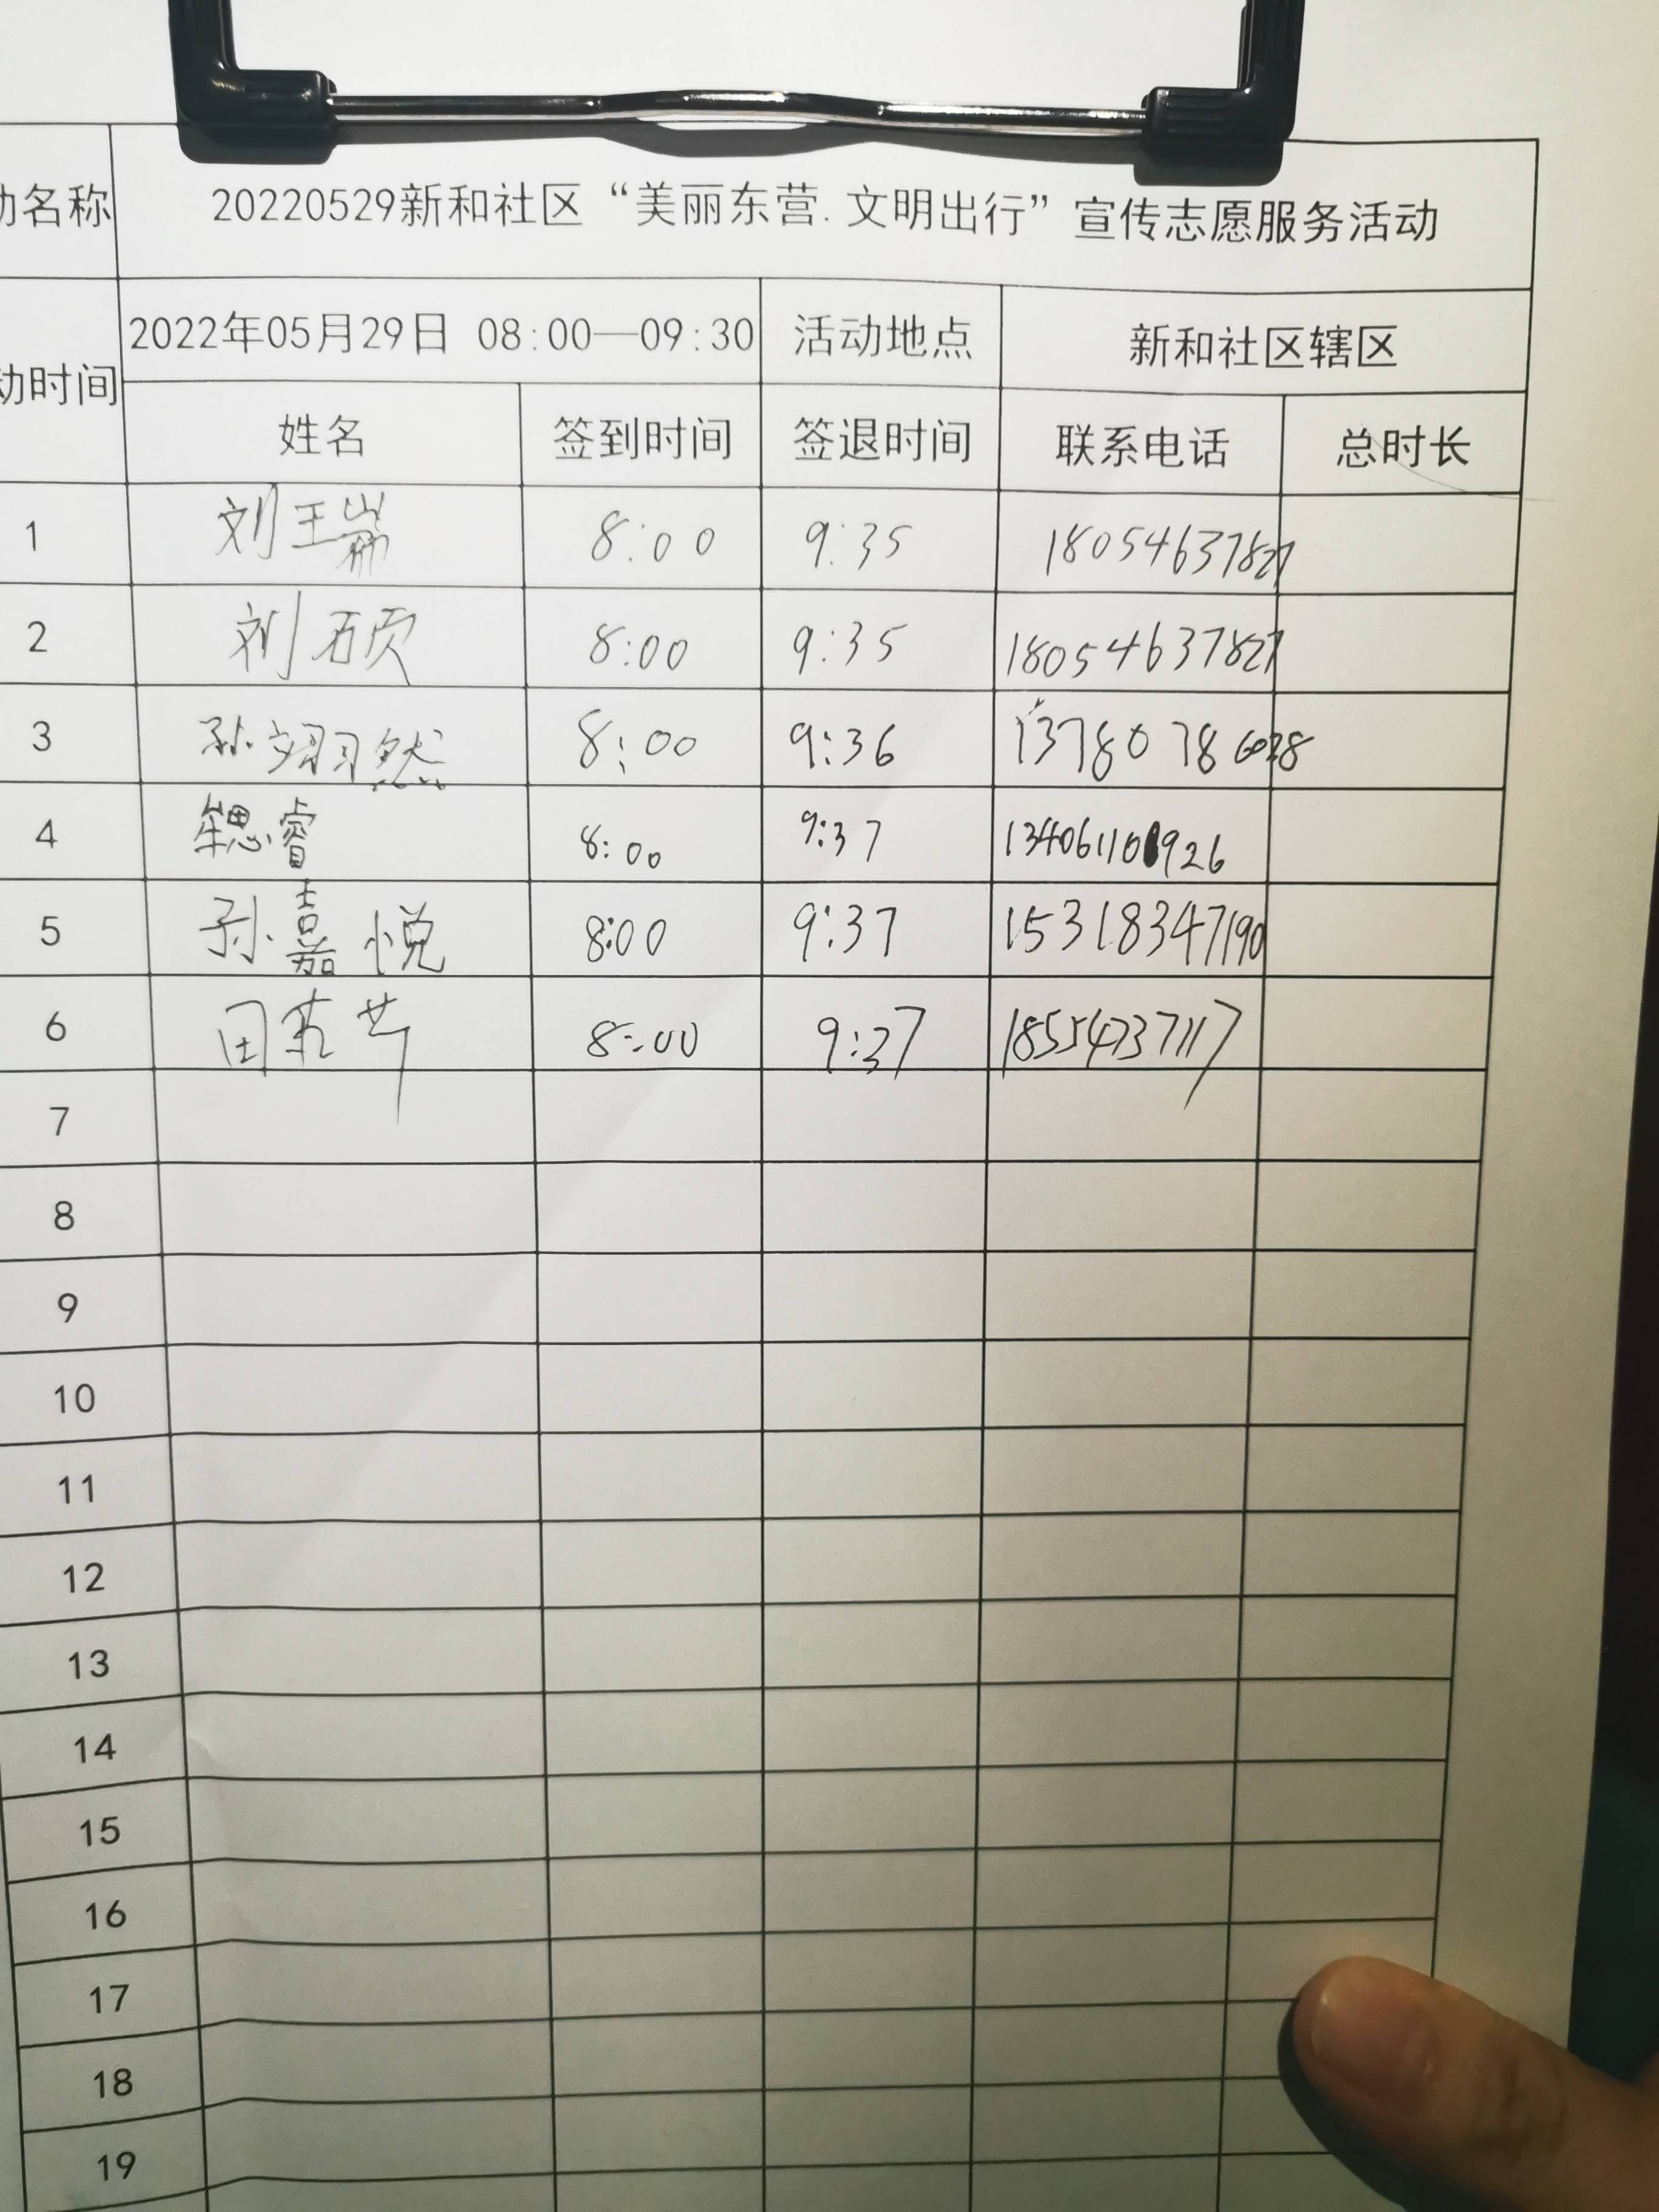 动名称 20220529新和社区“美丽东营.文明出行”宣传志愿服务活动
动时间 2022年05月29日 08:00—09:30 活动地点 新和社区辖区
姓名 签到时间 签退时间 联系电话 总时长
1 刘王崭 8:00 9:35 18054637827
2 刘硕 8:00 9:35 18054637827
3 孙翊然 8:00 9:36 13780786028
4 牟思睿 8:00 9:37 13406110926
5 孙嘉悦 8:00 9:37 15318347190
6 田 8:00 9:37 18554737117
7
8
9
10
11
12
13
14
15
16
17
18
19